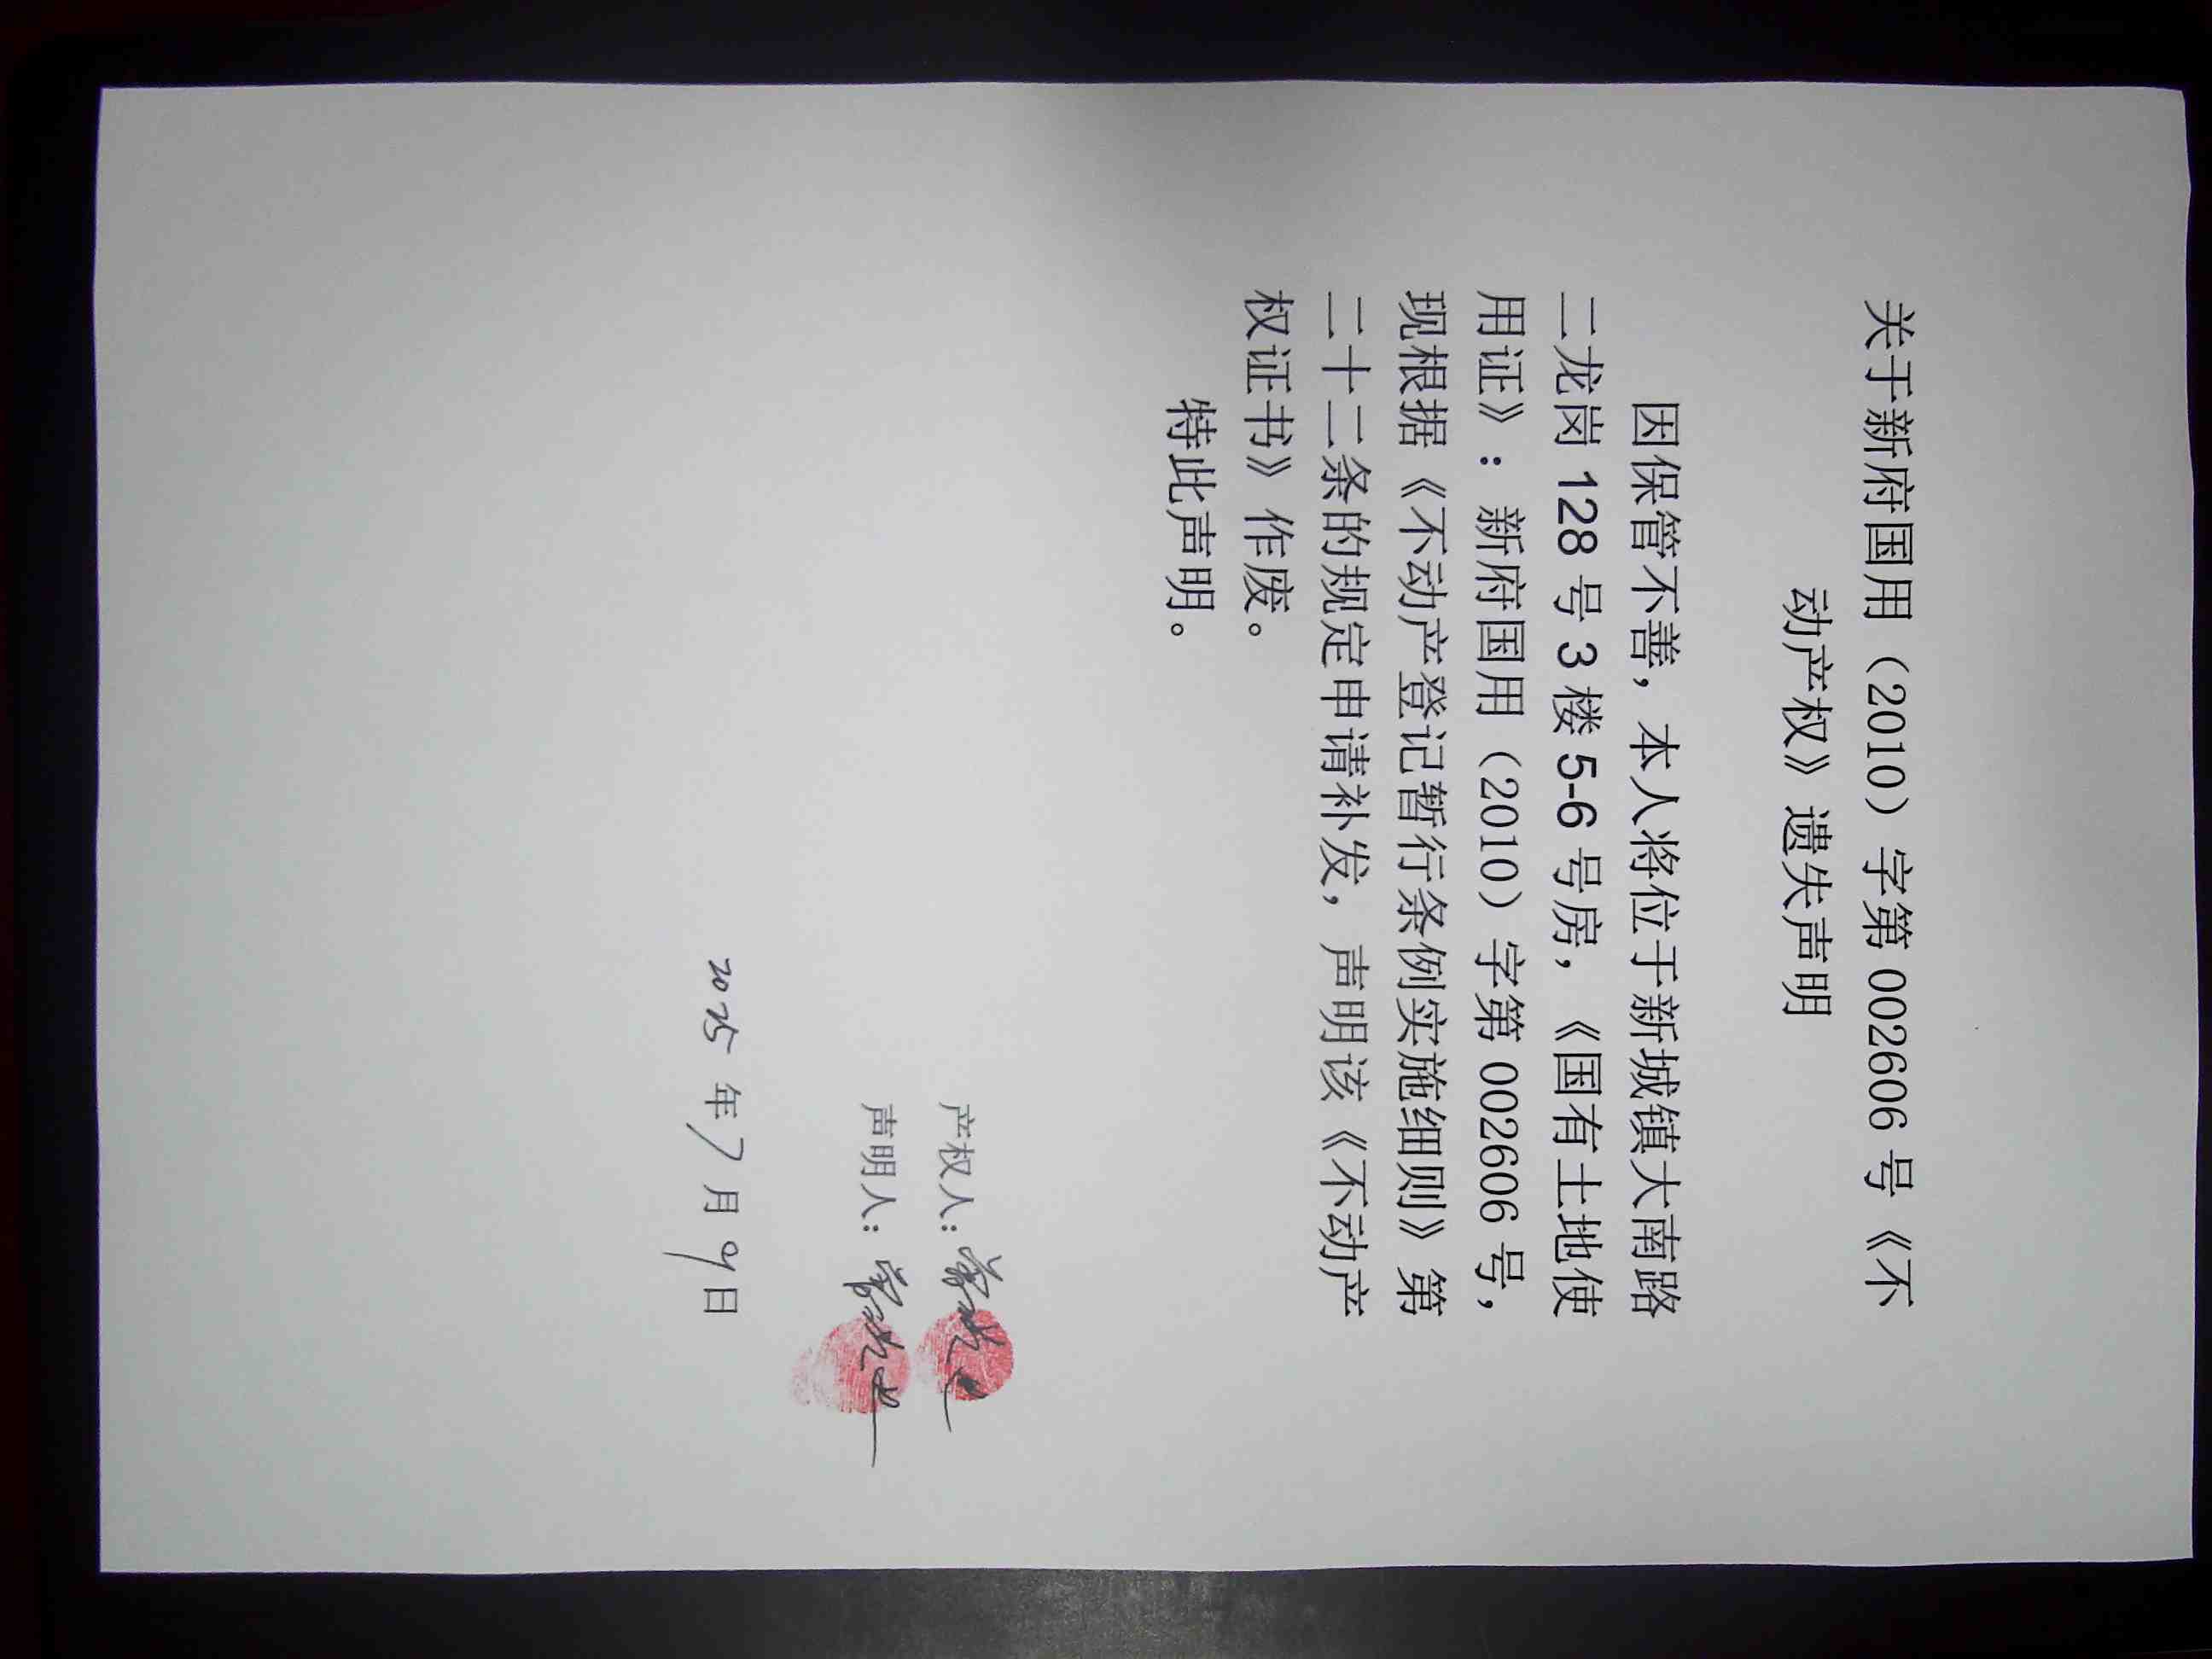 关于新府国用（2010）字第 002606 号《不
动产权》遗失声明
因保管不善，本人将位于新城镇大南路
二龙岗 128 号 3 楼 5-6 号房，《国有土地使
用证》：新府国用（2010）字第 002606 号，
现根据《不动产登记暂行条例实施细则》第
二十二条的规定申请补发，声明该《不动产
权证书》作废。
特此声明。
产权人：
声明人：
2025 年 7 月 9 日